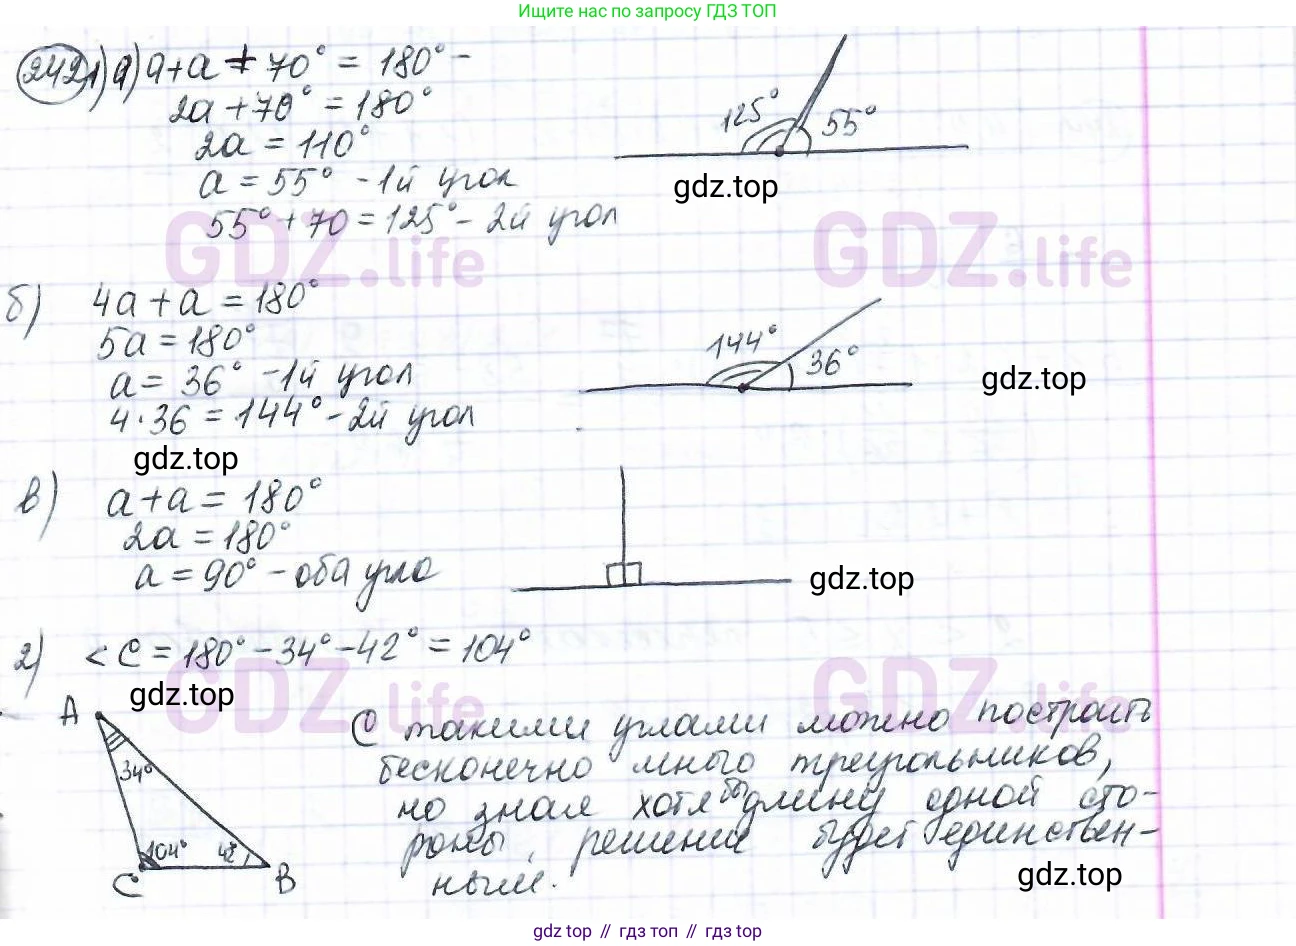 Ищите нас по запросу ГДЗ ТОП
242 1) а) a + a + 70° = 180° -
2a + 70° = 180°
2a = 110°
a = 55° - 1й угол
55° + 70 = 125° - 2й угол
125° 55°
gdz.top
GDZ.life GDZ.life
б) 4a + a = 180°
5a = 180°
a = 36° - 1й угол
4 · 36 = 144° - 2й угол
144° 36°
gdz.top
gdz.top
в) a + a = 180°
2a = 180°
a = 90° - оба угла
gdz.top
2) < C = 180° - 34° - 42° = 104°
gdz.top
GDZ.life GDZ.life
A
34°
104° 42°
C B
С такими углами можно построить
бесконечно много треугольников,
но зная хотя бы длину одной сто-
роны, решение будет единствен-
ным.
gdz.top
gdz.top // гдз топ // gdz top